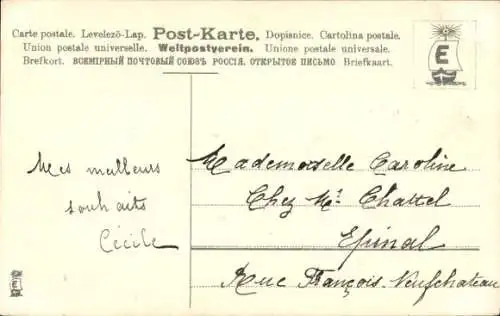 Carte postale. Levelező-Lap. Post-Karte. Dopisnice. Cartolina postale.
Union postale universelle. Weltpostverein. Unione postale universale.
Brefkort. ВСЕМІРНЫЙ ПОЧТОВЫЙ СОЮЗЪ РОССІЯ. ОТКРЫТОЕ ПИСЬМО Briefkaart.
E
Mes meilleurs
souhaits
Cécile
Mademoiselle Caroline
Chez Mr Chattel
Epinal
Rue François-Neufchateau
E